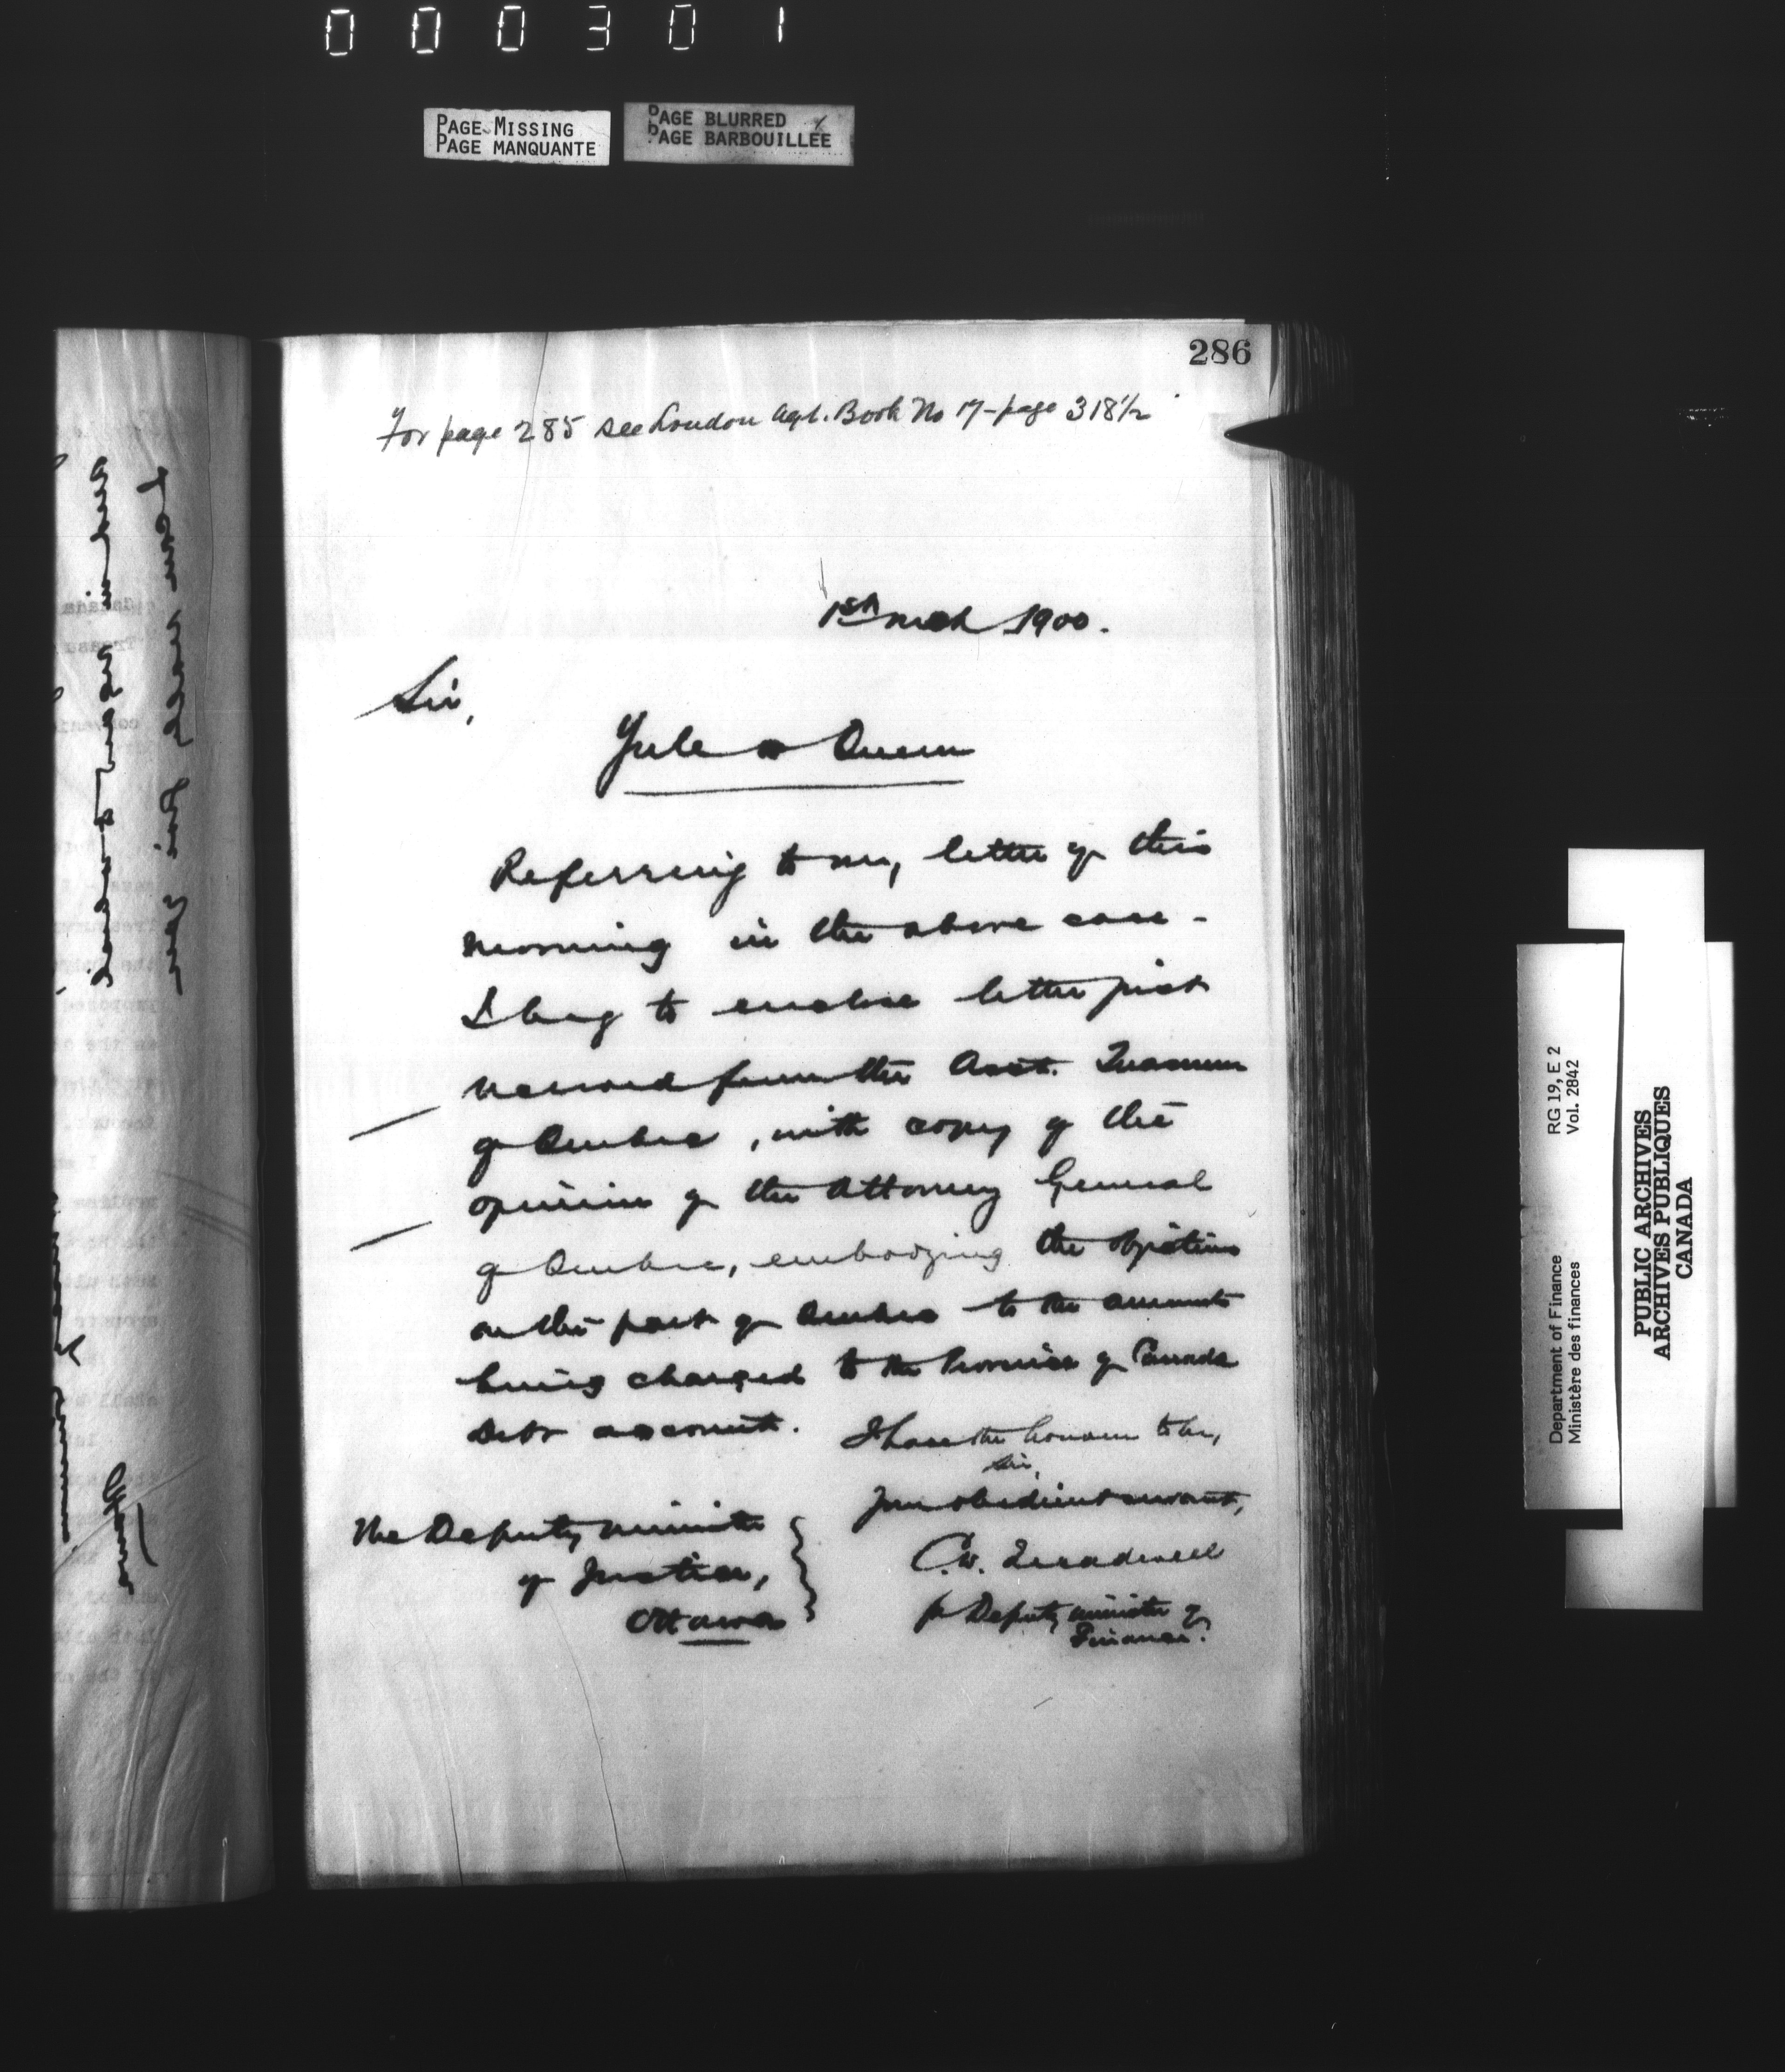 000301
PAGE MISSING
PAGE MANQUANTE
PAGE BLURRED
PAGE BARBOUILLÉE
286
For page 285 see London Agt. Book No 17 - page 318½
1st Mch 1900.
Sir,
Yule v Queen
Referring to my letter of this
morning in the above case -
I beg to enclose letter just
received from the Asst. Treasurer
of Quebec, with copy of the
opinion of the Attorney General
of Quebec, embodying the objections
on the part of Quebec to the amounts
being charged to the Province of Canada
Debt account.
I have the honour to be,
Sir,
Your obedient servant,
C.W. Treadwell
for Deputy Minister of
Finance.
The Deputy Minister
of Justice,
Ottawa
RG 19, E 2
Vol. 2842
Department of Finance
Ministère des finances
PUBLIC ARCHIVES
ARCHIVES PUBLIQUES
CANADA